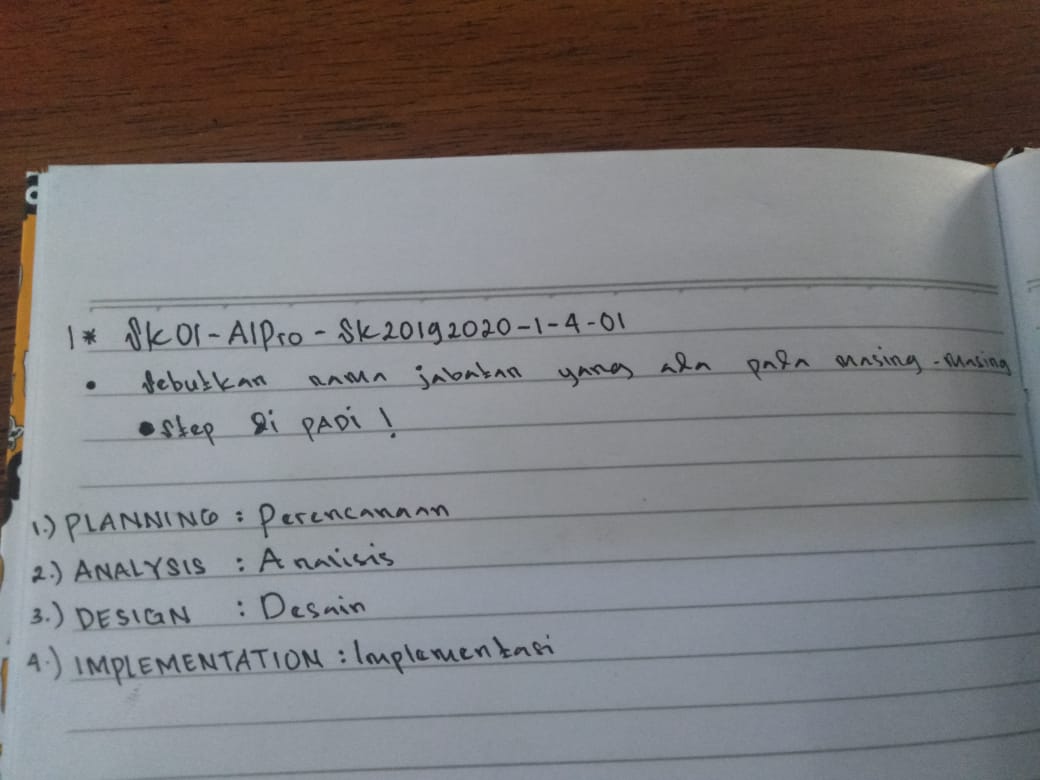 1* Sk01-AlPro-Sk20192020-1-4-01
• Sebutkan nama jabatan yang ada pada masing-masing
• Step di PADI!
1.) PLANNING : Perencanaan
2.) ANALYSIS : Analisis
3.) DESIGN : Desain
4.) IMPLEMENTATION : Implementasi